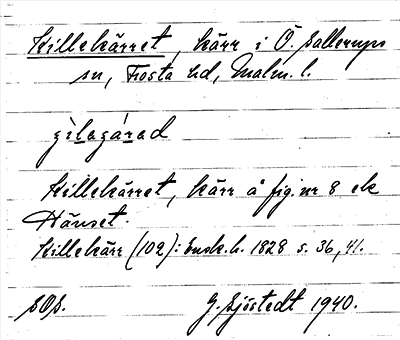 Killekärret, kärr i Ö. Sallerups
sn, Frosta hd, Malm. l.
Killekärret, kärr å fig. nr 8 ek
Hänset.
Killekärr (102): Ensk. h. 1828 s. 36, 41.
SOS. G. Sjöstedt 1940.